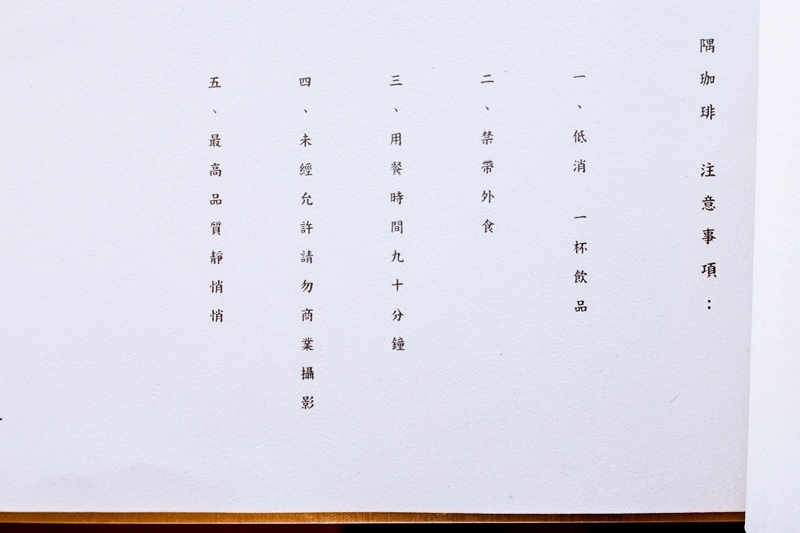 隅珈琲 注意事項：
一、低消 一杯飲品
二、禁帶外食
三、用餐時間九十分鐘
四、未經允許請勿商業攝影
五、最高品質靜悄悄